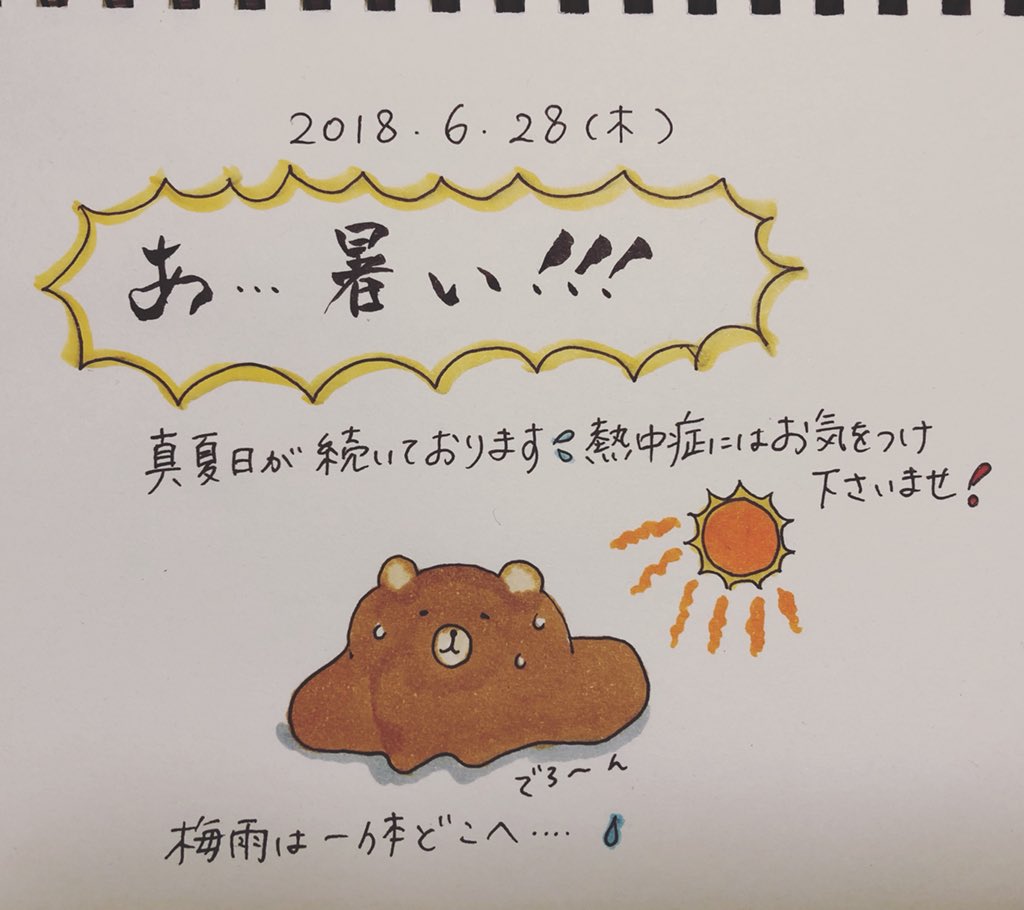 2018.6.28(木)
あ…暑い!!!
真夏日が続いております 熱中症にはお気をつけ
下さいませ!
でろ〜ん
梅雨は一体どこへ‥‥